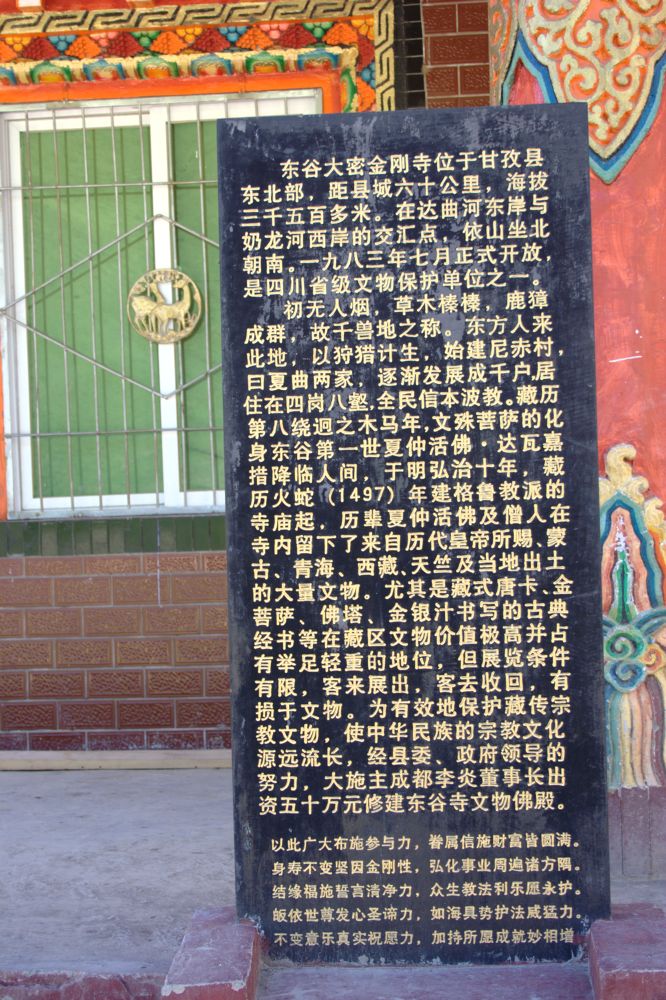 东谷大密金刚寺位于甘孜县
东北部，距县城六十公里，海拔
三千五百多米。在达曲河东岸与
奶龙河西岸的交汇点，依山坐北
朝南。一九八三年七月正式开放，
是四川省级文物保护单位之一。
初无人烟，草木榛榛，鹿獐
成群，故千兽地之称。东方人来
此地，以狩猎计生，始建尼赤村，
曰夏曲两家，逐渐发展成千户，居
住在四岗八壑，全民信本波教。藏历
第八绕迥之木马年，文殊菩萨的化
身东谷第一世夏仲活佛·达瓦嘉
措降临人间，于明弘治十年，藏
历火蛇（1497）年建格鲁教派的
寺庙起，历辈夏仲活佛及僧人在
寺内留下了来自历代皇帝所赐、蒙
古、青海、西藏、天竺及当地出土
的大量文物。尤其是藏式唐卡、金
菩萨、佛塔、金银汁书写的古典
经书等在藏区文物价值极高并占
有举足轻重的地位，但展览条件
有限，客来展出，客去收回，有
损于文物。为有效地保护藏传宗
教文物，使中华民族的宗教文化
源远流长，经县委、政府领导的
努力，大施主成都李炎董事长出
资五十万元修建东谷寺文物佛殿。
以此广大布施参与力，眷属信施财富皆圆满。
身寿不变坚因金刚性，弘化事业周遍诸方隅。
结缘福施誓言清净力，众生教法利乐愿永护。
皈依世尊发心圣谛力，如海具势护法威猛力。
不变意乐真实祝愿力，加持所愿成就妙相增